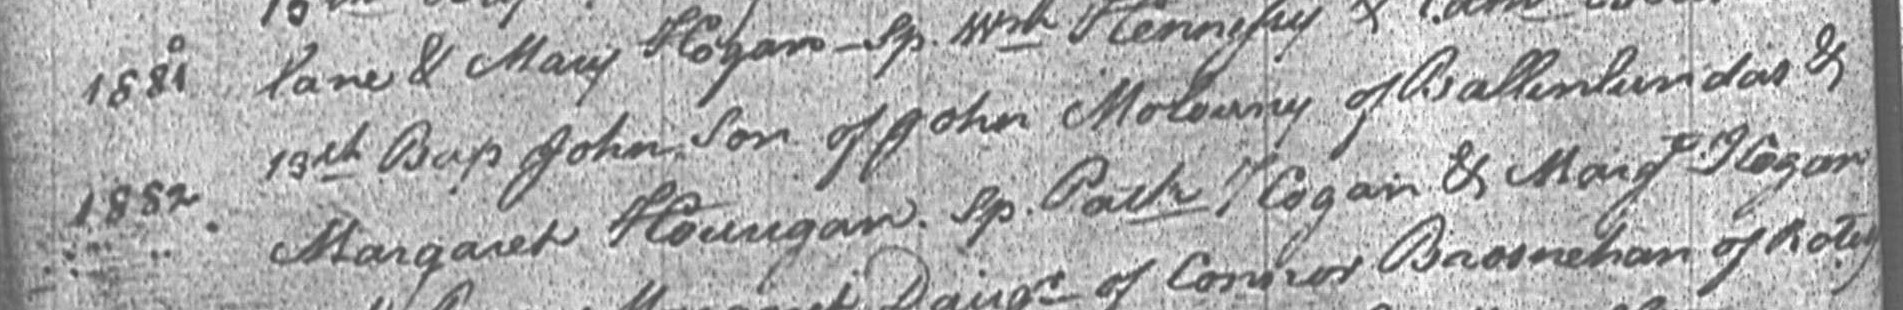 1881 lane & Mary Hogan - Sp. Wm Hennessy &
13th Bap John Son of John Molouny of Ballinlundas &
1882. Margaret Hourigan. Sp. Patk Hogan & Margt Hogan
Margaret Daugr of Connor Brosnehan of